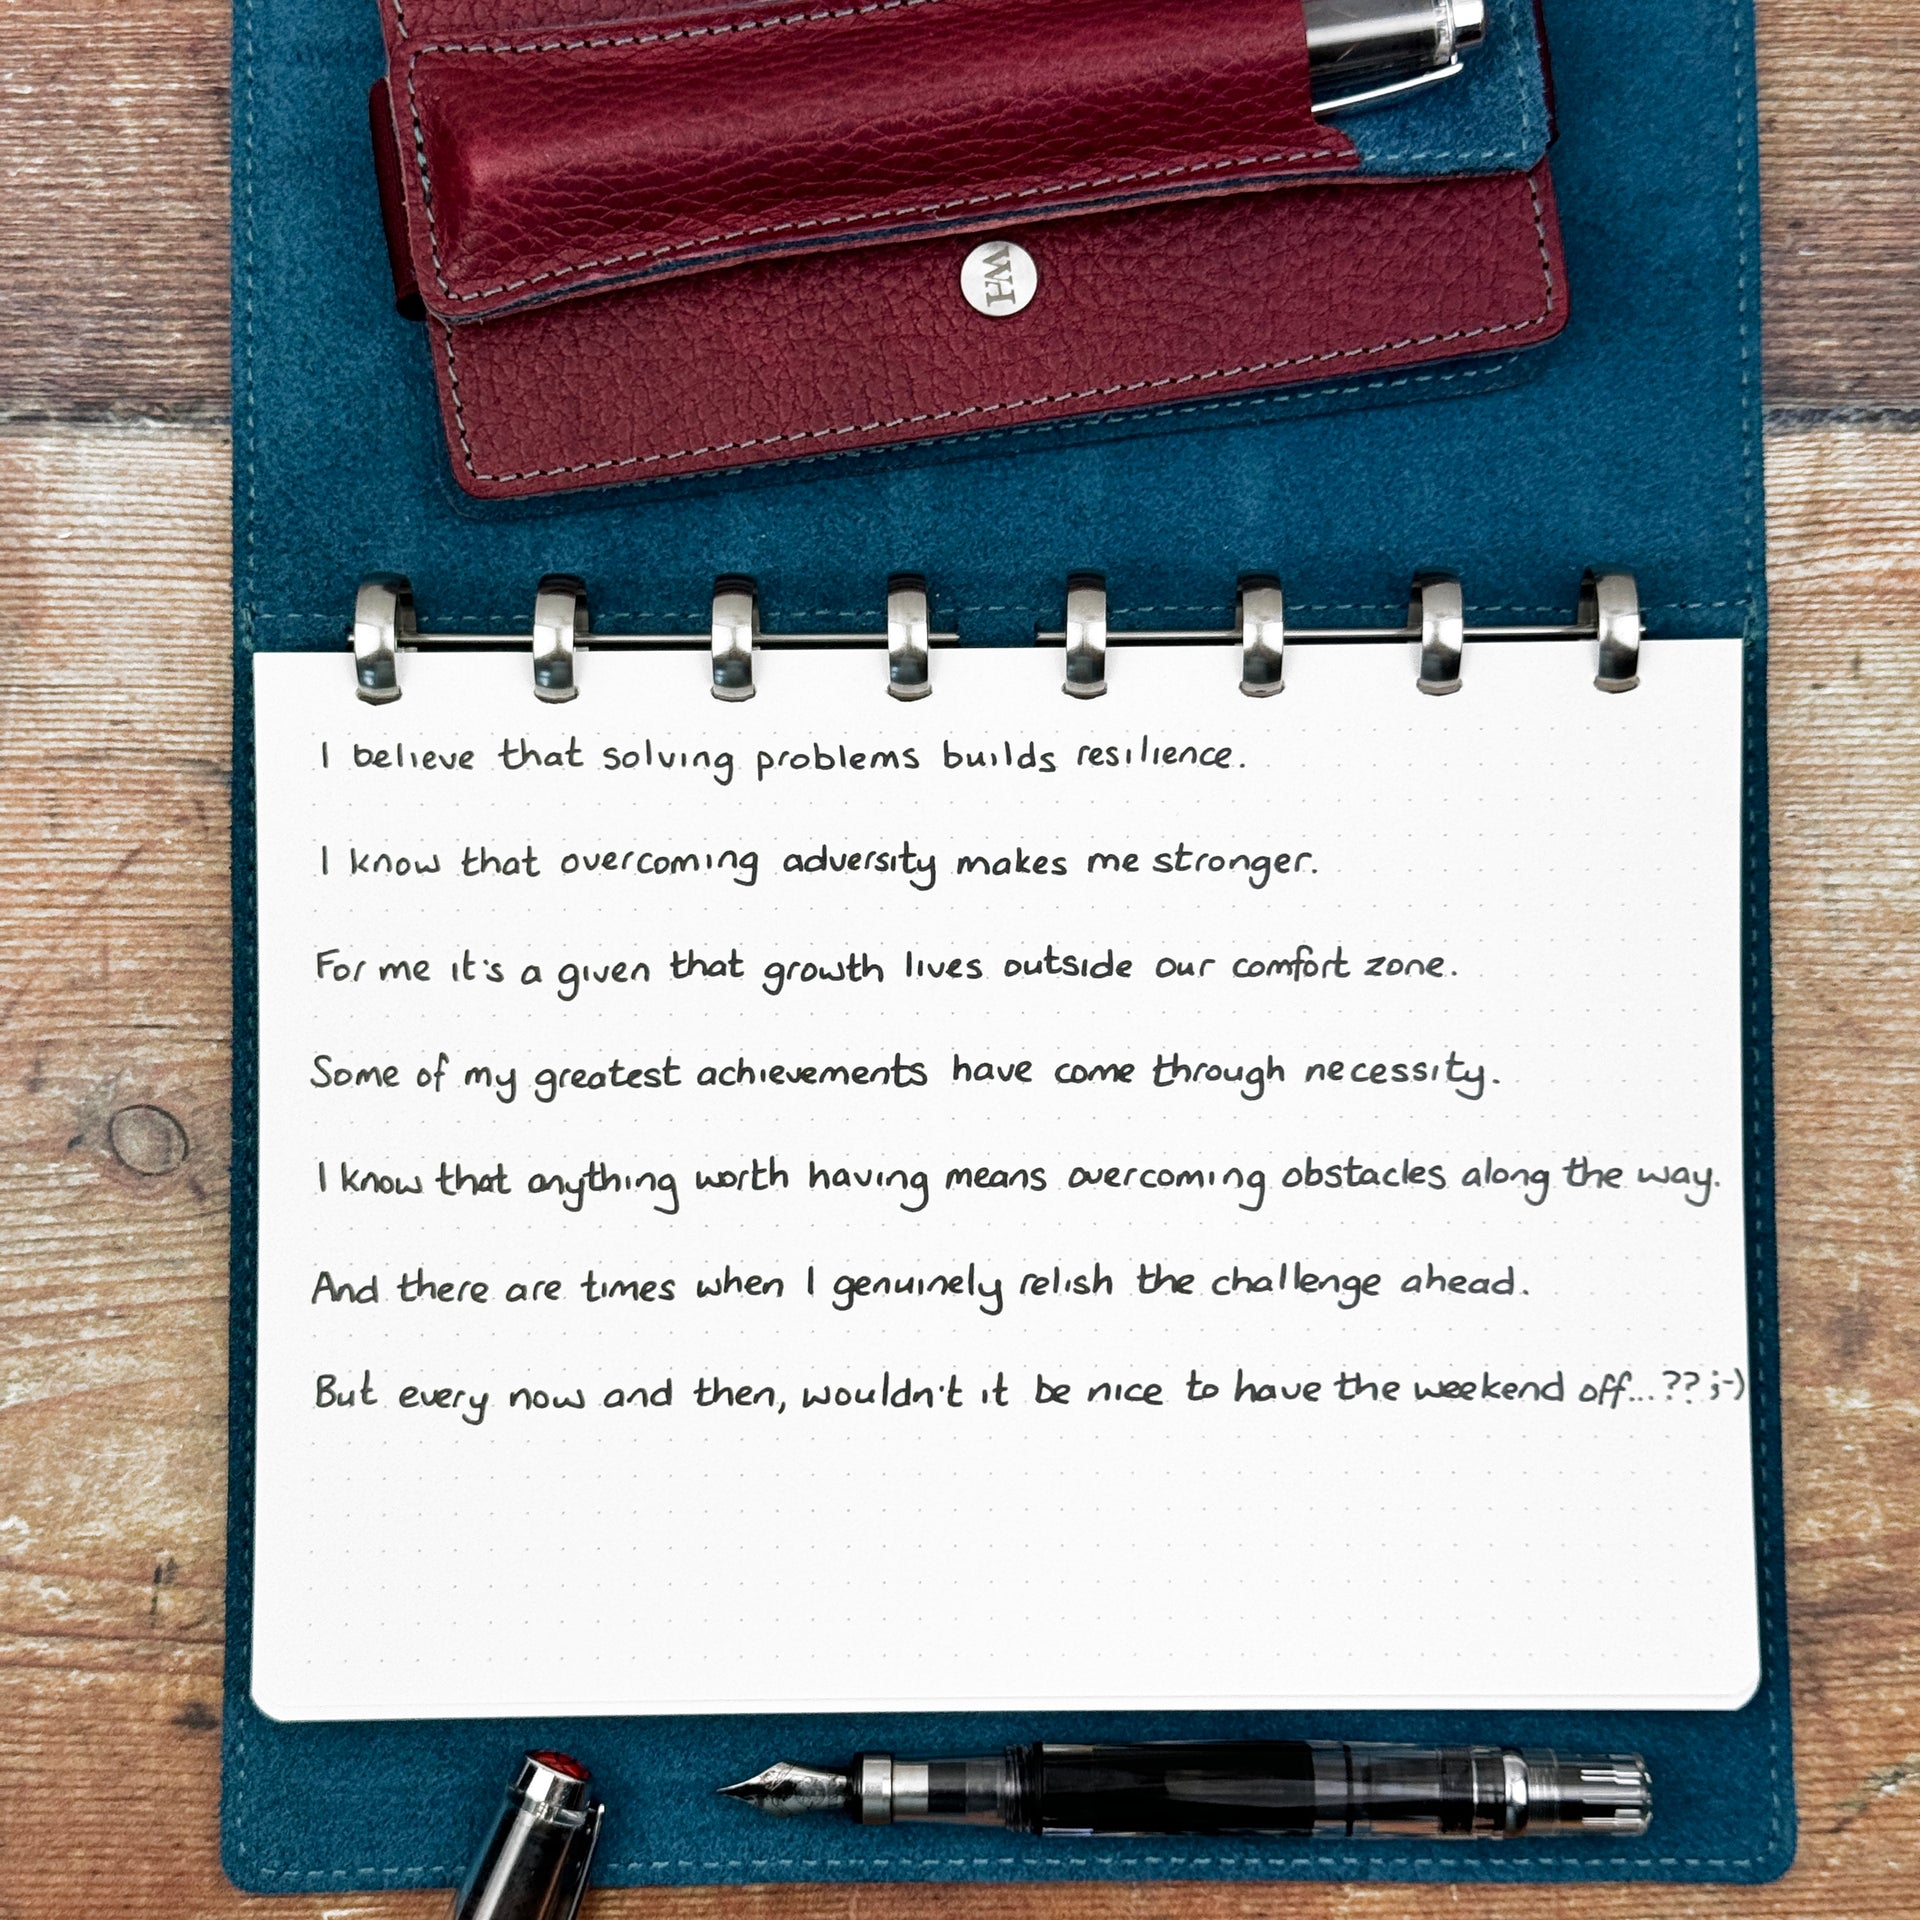 WH
I believe that solving problems builds resilience.
I know that overcoming adversity makes me stronger.
For me it's a given that growth lives outside our comfort zone.
Some of my greatest achievements have come through necessity.
I know that anything worth having means overcoming obstacles along the way.
And there are times when I genuinely relish the challenge ahead.
But every now and then, wouldn't it be nice to have the weekend off...?? ;-)